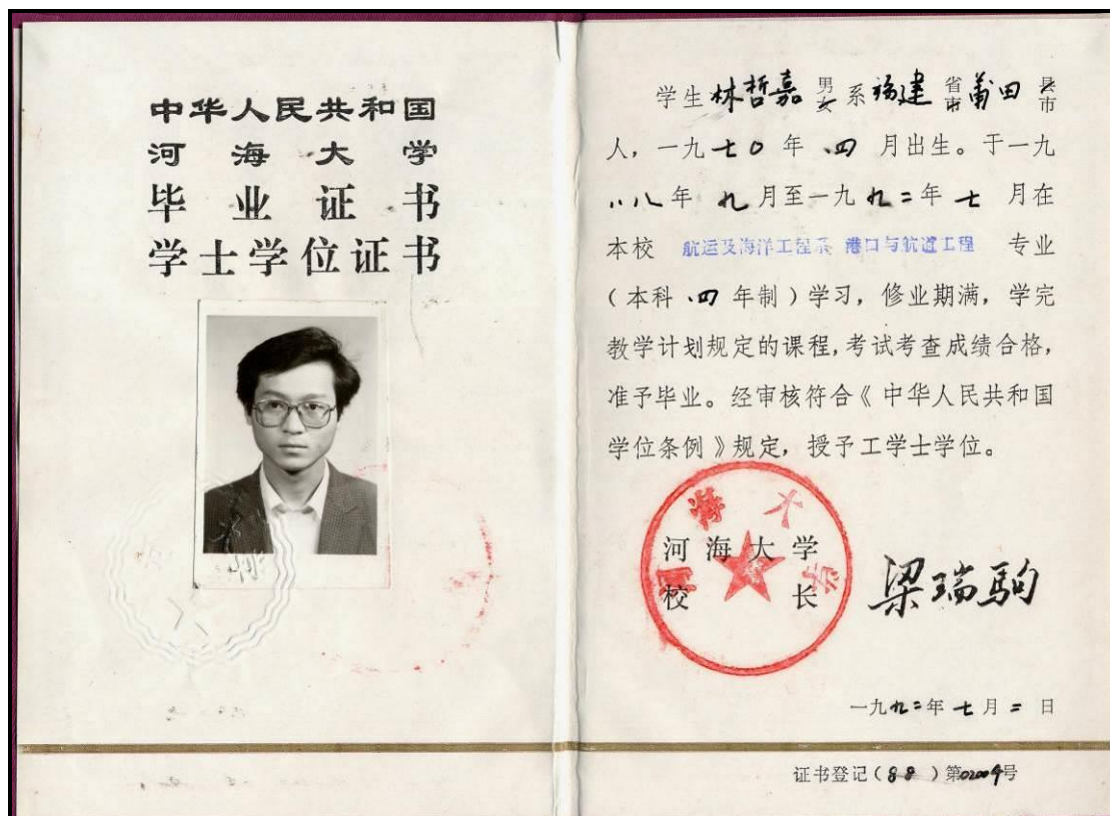 中华人民共和国
河海大学
毕业证书
学士学位证书
学生林哲嘉 男女 系福建 省市 莆田 县市
人，一九七0年四月出生。于一九
八八年九月至一九九二年七月在
本校 航运及海洋工程系 港口与航道工程 专业
（本科四年制）学习，修业期满，学完
教学计划规定的课程，考试考查成绩合格，
准予毕业。经审核符合《中华人民共和国
学位条例》规定，授予工学士学位。
河海大学
河海大学
校长 梁瑞驹
一九九二年七月二日
证书登记（88）第02009号